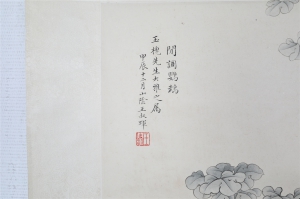 閒調鸚鵡
玉槐先生大雅之屬
甲辰十二月山陰王叔暉